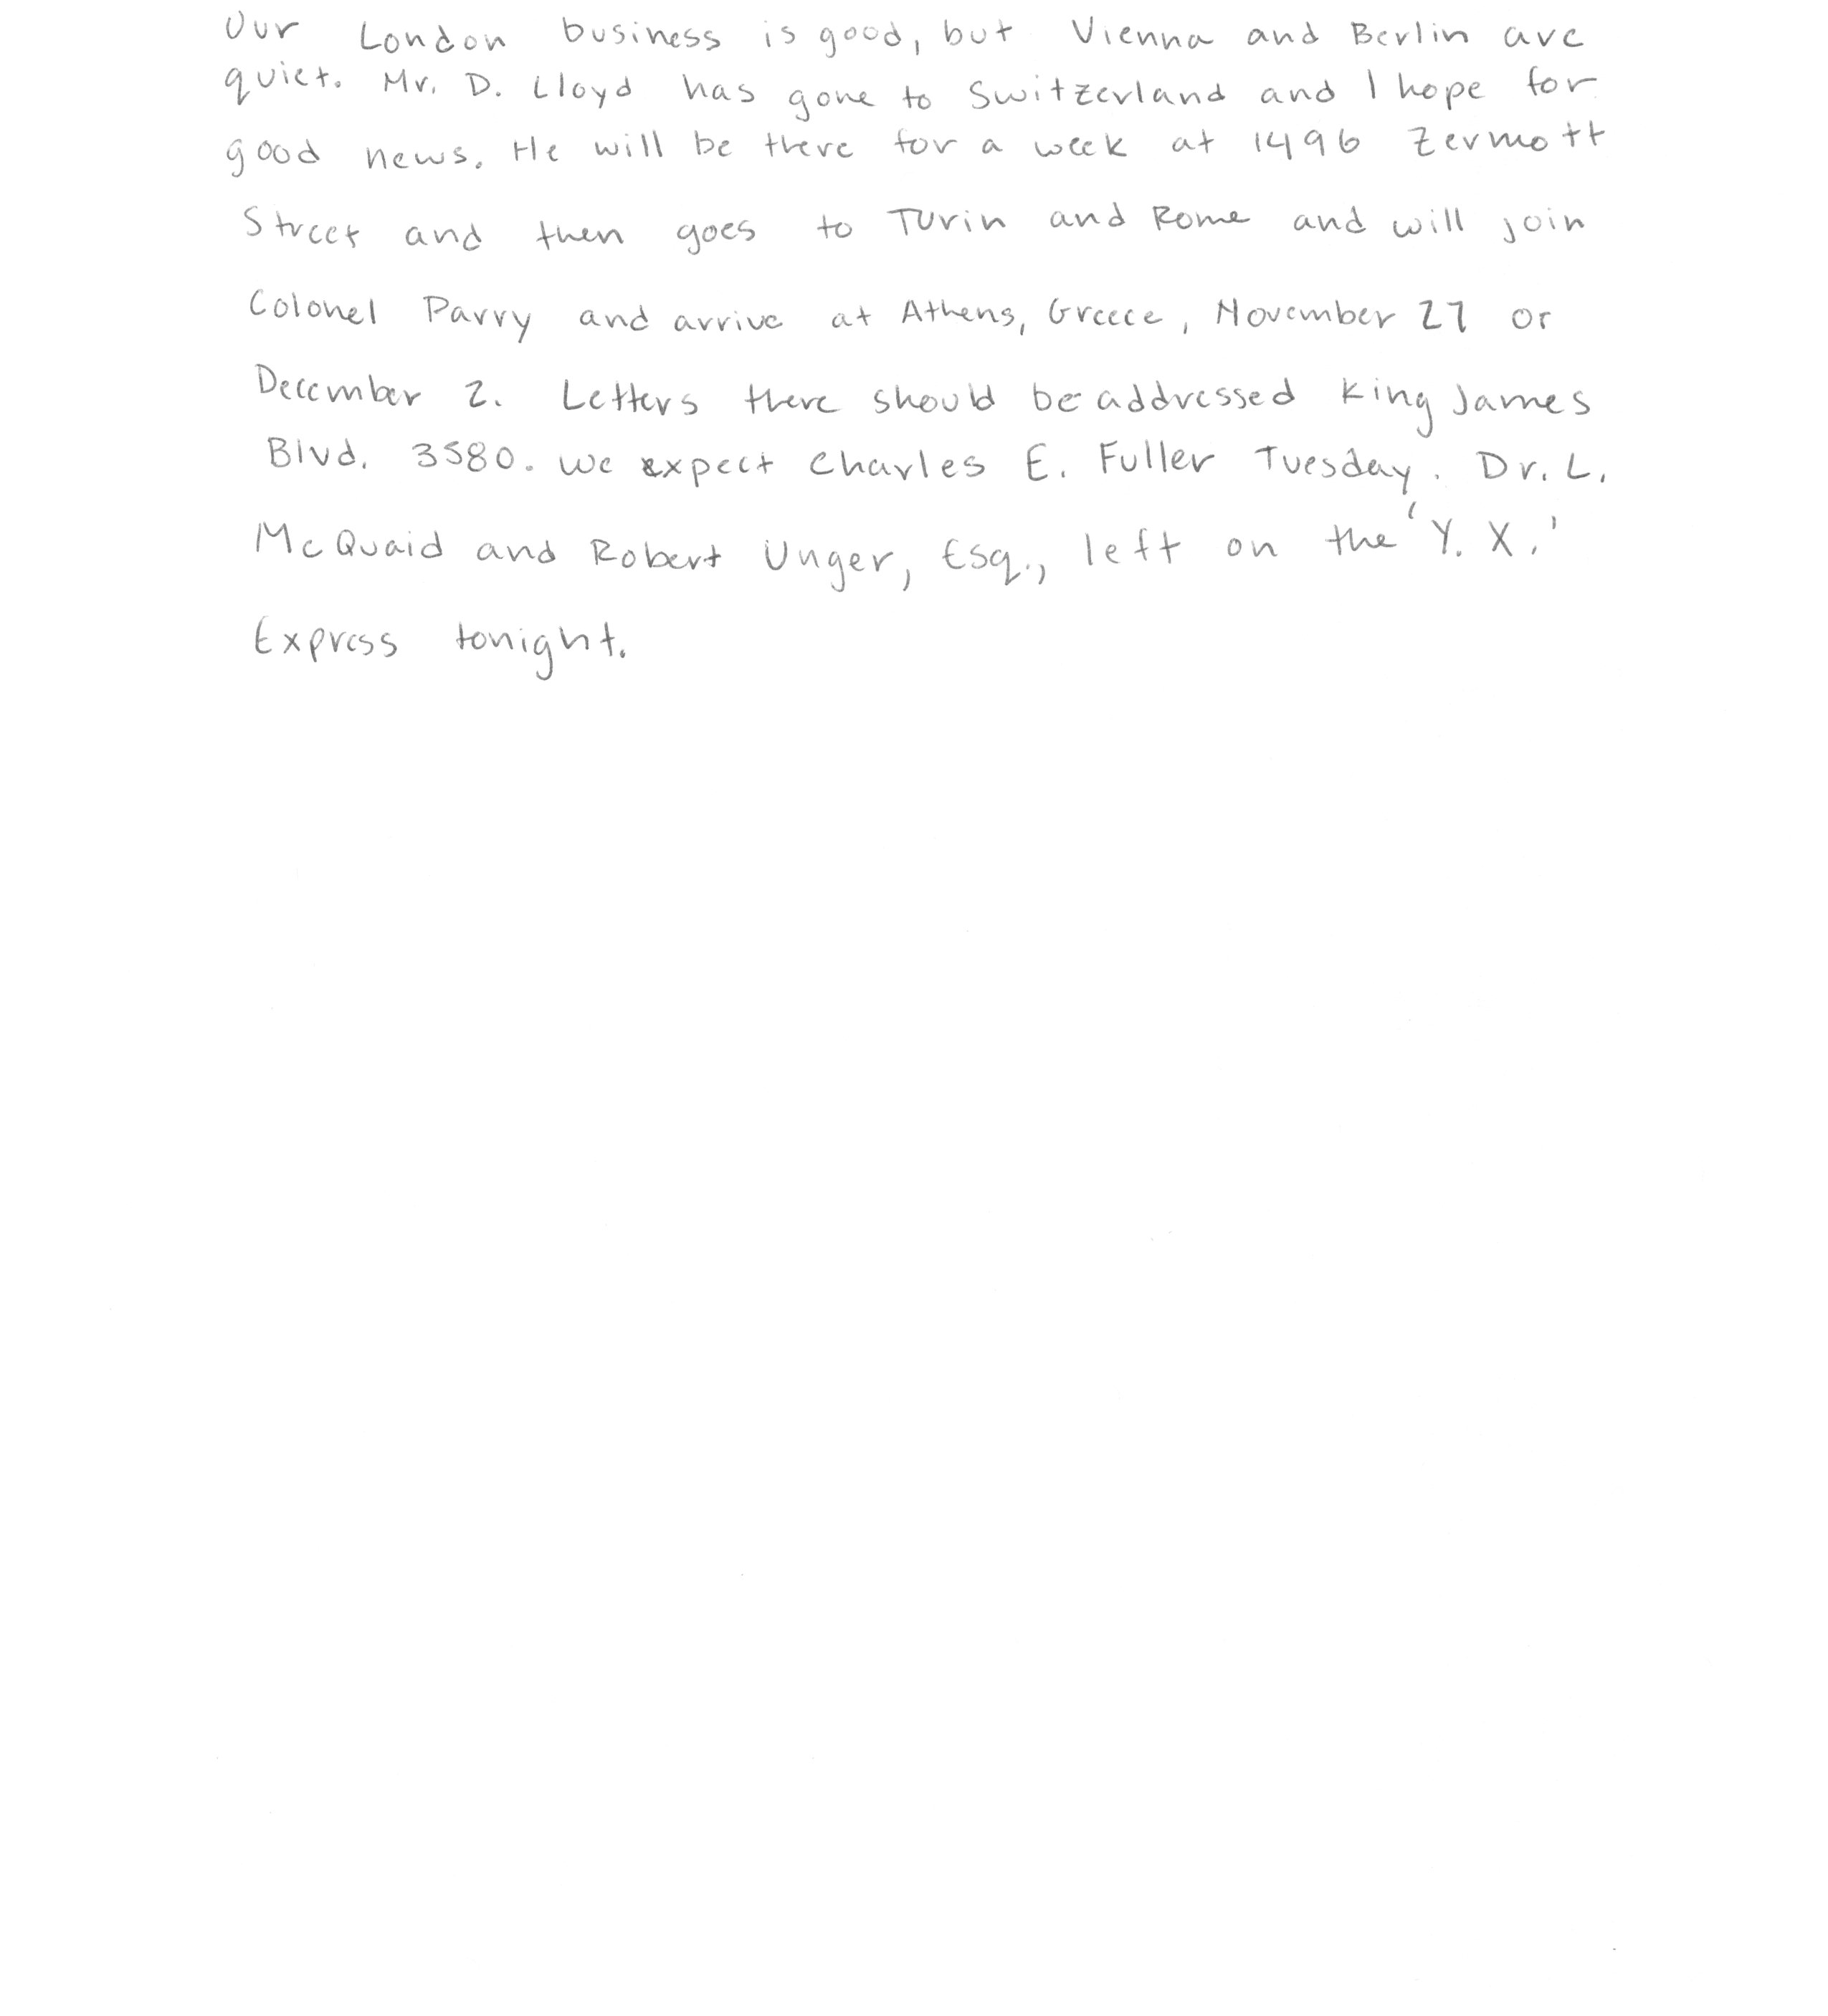 Our London business is good, but Vienna and Berlin are
quiet. Mr. D. Lloyd has gone to Switzerland and I hope for
good news. He will be there for a week at 1496 Zermott
Street and then goes to Turin and Rome and will join
Colonel Parry and arrive at Athens, Greece, November 27 or
December 2. Letters there should be addressed King James
Blvd. 3580. We expect Charles E. Fuller Tuesday. Dr. L.
McQuaid and Robert Unger, Esq., left on the 'Y. X.'
Express tonight.